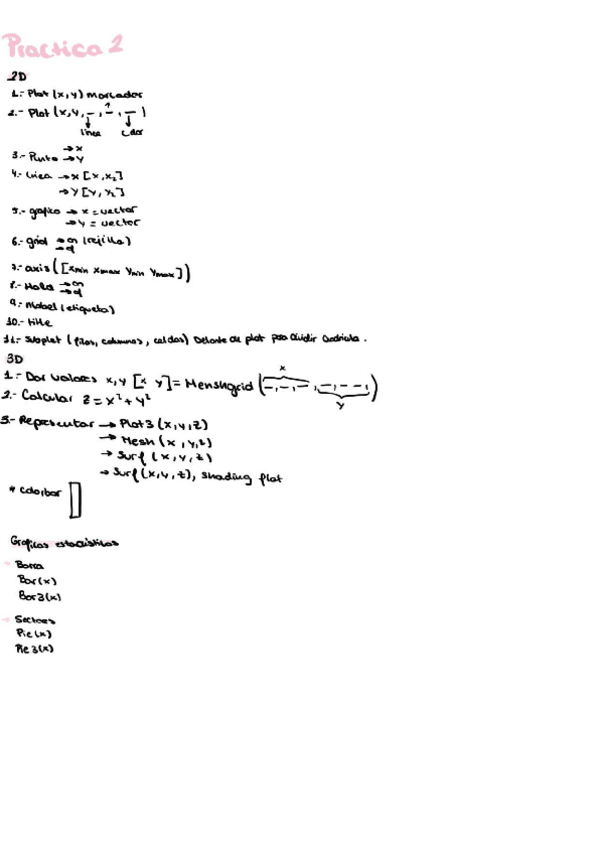 Practica 2
2D
1.- Plot (x,y) marcador
2.- Plot (x,y, _ , _ , _ )
linea color
3.- Punto → x
→ y
4.- Linea → x [x, x2]
→ y [y, y2]
5.- grafico → x = vector
→ y = vector
6.- grid → on (rejilla)
→ off
7.- axis ([xmin xmax ymin ymax])
8.- Hold → on
→ off
10.- title
11.- Subplot (filas, columnas, celdas) Delante de plot para dividir cuadricula.
3D
1.- Dar valores x,y [x y] = Menshgrid (_,_,_ , _,_ _,)
x
y
2.- Calcular z = x² + y²
3.- Representar → Plot3 (x,y,z)
→ Mesh (x,y,z)
→ Surf (x,y,z)
→ Surf (x,y,z), shading flat
* Colorbar
Graficos estadisticos
Barra
Bar(x)
Bar3(x)
Sectores
Pie(x)
Pie3(x)